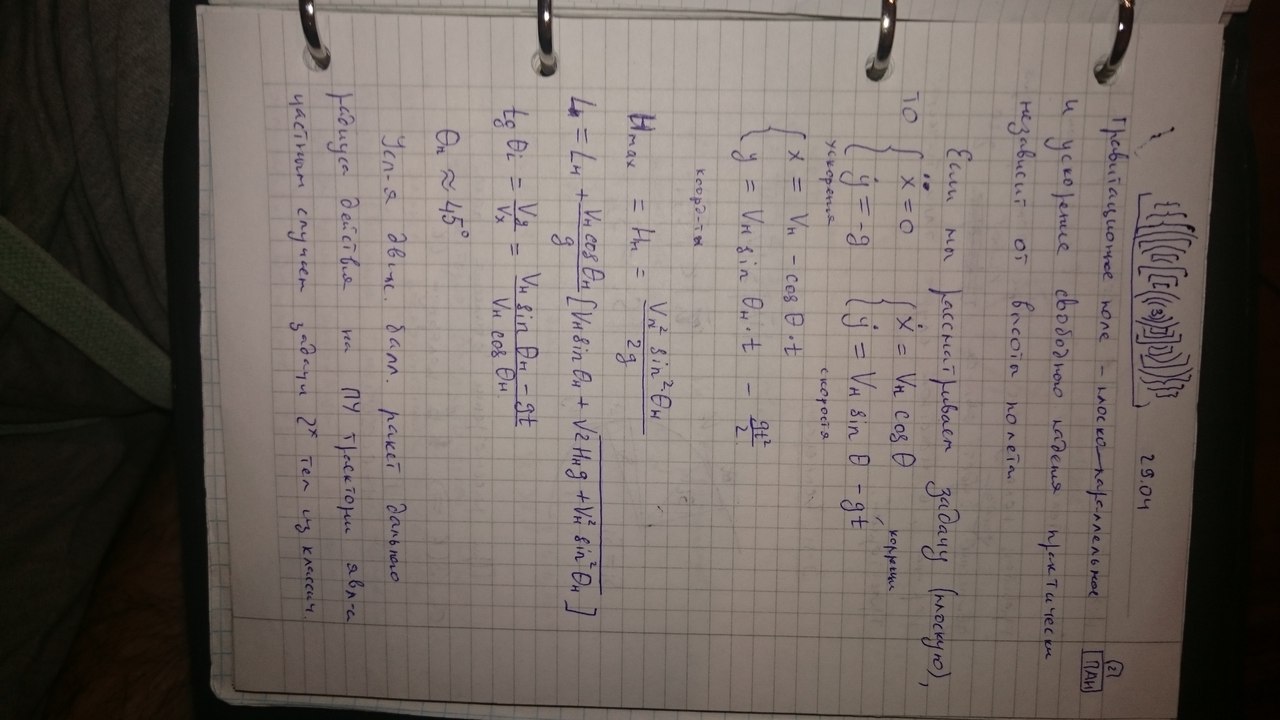 29.04
(2)
ПАИ
Гравитационное поле – плоско-параллельное
и ускорение свободного падения практически
независит от высоты полета.
Если мы рассматриваем задачу (плоскую),
то { ẍ = 0 { ẋ = Vн cos θ
{ ÿ = -g { ẏ = Vн sin θ - gt
ускорения скорости
{ x = Vн - cos θ · t
{ y = Vн sin θн · t - gt²/2
коорд-ты
Hmax = Hн = Vн² sin² θн / 2g
Lп = Lн + Vн cos θн / g [Vн sin θн + √(2Hнg + Vн² sin² θн)]
tg θi = Vy/Vx = (Vн sin θн - gt) / (Vн cos θн)
θн ≈ 45°
Усл-я движ. балл. ракет дального
радиуса действия на ПУ трактории явл-ся
частным случает задачи 2ˣ тел из классич.